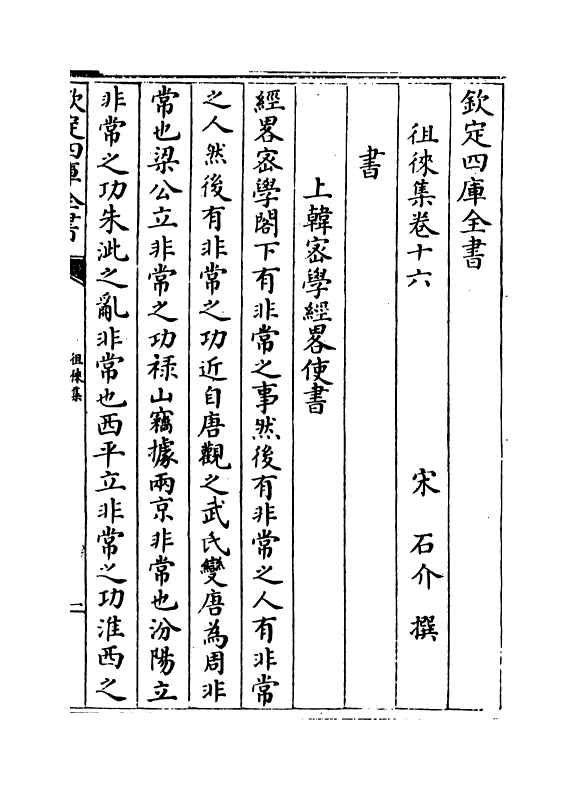 欽定四庫全書
徂徠集卷十六
宋 石介 撰
書
上韓宻學經畧使書
經畧宻學閤下有非常之事然後有非常之人有非常
之人然後有非常之功近自唐觀之武氏變唐為周非
常也梁公立非常之功祿山竊據兩京非常也汾陽立
非常之功朱泚之亂非常也西平立非常之功淮西之
欽定四庫全書
徂徠集